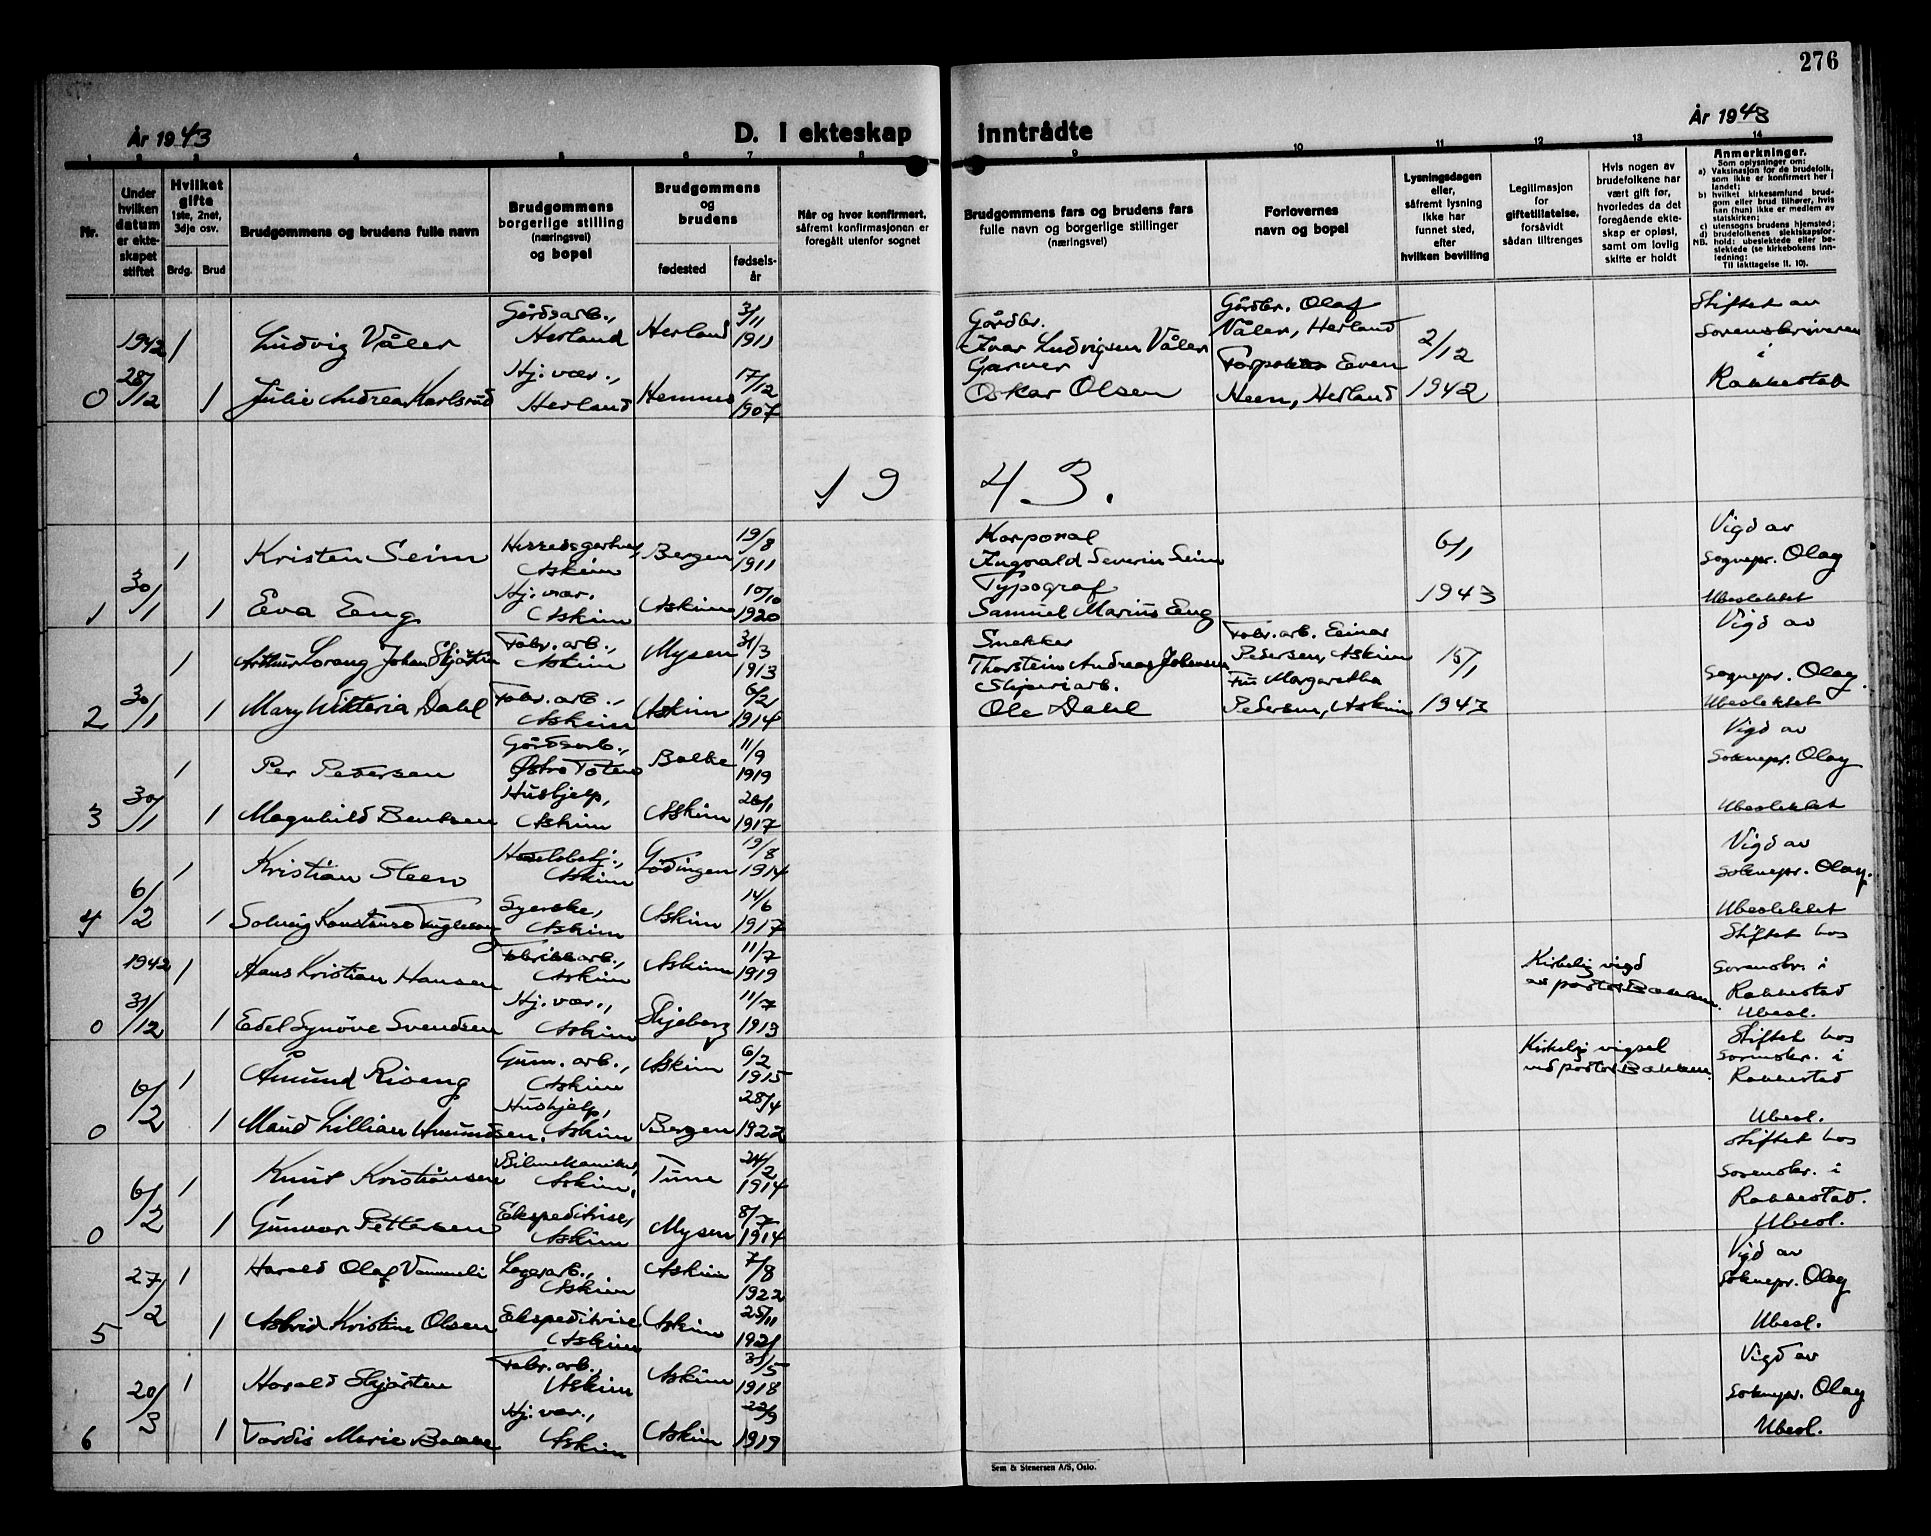 276
År 1943
D. I ekteskap
inntrådte
År 1943
1 2 3 4 5 6 7 8
9 10 11 12 13 14
Nr.
Under hvilken datum er ekteskapet stiftet
Hvilket gifte 1ste, 2net, 3dje osv.
Brdg. Brud
Brudgommens og brudens fulle navn
Brudgommens borgerlige stilling (næringsvei) og bopel
Brudgommens og brudens
fødested
fødselsår
Når og hvor konfirmert, såfremt konfirmasjonen er foregått utenfor sognet
Brudgommens fars og brudens fars fulle navn og borgerlige stillinger (næringsvei)
Forlovernes navn og bopel
Lysningsdagen eller, såfremt lysning ikke har funnet sted, efter hvilken bevilling
Legitimasjon for giftetillatelse, forsåvidt sådan tiltrenges
Hvis nogen av brudefolkene har vært gift før, hvorledes da det foregående ekteskap er opløst, samt om lovlig skifte er holdt
Anmerkninger.
Som oplysninger om:
a) Vaksinasjon for de brudefolk, som ikke er konfirmert her i landet;
b) hvilket kirkesamfund brudgom eller brud tilhører, hvis han (hun) ikke er medlem av statskirken;
c) utensogns brudens hjemsted;
d) brudefolkenes slektskapsforhold: ubeslektede eller beslektede (se kirkebokens innledning:
NB.
Til iakttagelse II. 10).
1942 1 Ludvig Våler Gårdsarb., Herland Herland 3/11 1911 Gårdbr. Ivar Ludvigsen Våler Gårdbr. Olaf Våler, Herland 2/12 Stiftet av Sorenskriveren
0 28/12 1 Julie Andrea Karlsrud Hj. vær., Herland Hemnes 17/12 1907 Garver Oskar Olsen Even Heen, Herland 1942 i Rakkestad
19 43.
1 Kristen Seim Askim Bergen 19/8 1911 Korporal Ingvald Severin Seim 6/1 Vigd av Sognepr. Olay
1 30/1 1 Eva Eng Hj. vær. Askim Askim 10/10 1920 Typograf Samuel Marius Eng 1943 Ubeslektet
1 Arthur Lorang Johan Skjørten Fabr. arb., Askim Mysen 31/3 1913 Snekker Thorstein Andreas Johansen Fabr. arb. Einar Pedersen, Askim 15/1 Vigd av Sognepr. Olay.
2 30/1 1 Mary Wiktoria Dahl Fabr. arb., Askim Askim 6/2 1914 Sliperiarb. Ole Dahl Fru Margaretha Pedersen, Askim 1943 Ubeslektet
1 Per Pedersen Gårdsarb., Østre Toten Balke 11/9 1919 Vigd av Soknepr. Olay
3 30/1 1 Magnhild Bentsen Hushjelp, Askim Askim 26/1 1917 Ubeslektet
1 Kristian Steen Askim Lødingen 19/8 1914 Vigd av Soknepr. Olay.
4 6/2 1 Solveig Konstanse Syerske, Askim Askim 14/6 1917 Ubeslektet
1942 1 Hans Kristian Hansen Fabrikkarb., Askim Askim 11/7 1919 Kirkelig vigd av pastor Bakken. Stiftet hos Sorenskr. i
0 31/12 1 Edel Synøve Svendsen Hj. vær., Askim Skjeberg 11/7 1913 Rakkestad Ubesl.
1 Åmund Riseng Gum. arb., Askim Askim 6/2 1915 Kirkelig vigsel ved pastor Bakken. Stiftet hos Sorenskr. i Rakkestad
0 6/2 1 Maud Lillian Amundsen Hushjelp, Askim Bergen 28/4 1922 Ubesl.
1 Knut Kristiansen Bilmekaniker, Askim. Tune 24/2 1914 Stiftet hos Sorenskr. i
0 6/2 1 Gunvor Pettersen Ekspeditrise, Askim Mysen 8/7 1914 Rakkestad. Ubesl.
1 Harald Olaf Vammeli Lagerarb., Askim Askim 7/8 1922 Vigd av Soknepr. Olay
5 27/2 1 Astrid Kristine Olsen Ekspeditrise Askim Askim 25/11 1921 Ubesl.
1 Harald Skjørten Fabr. arb., Askim Askim 31/5 1918 Vigd av Soknepr. Olay
6 20/3 1 Tordis Marie Bakke Hj. vær., Askim Askim 22/9 1919 Ubesl.
Sem & Stenersen A/S, Oslo.